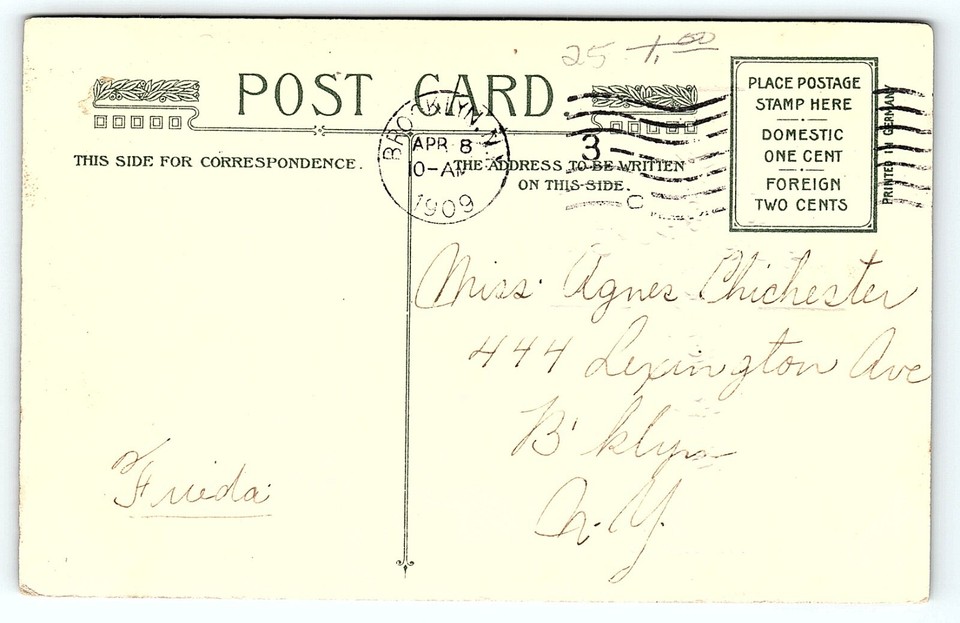 25 1.00
POST CARD
BROOKLYN, N.Y.
APR 8
10-AM
1909
3
C
THIS SIDE FOR CORRESPONDENCE.
THE ADDRESS TO BE WRITTEN
ON THIS SIDE.
PLACE POSTAGE
STAMP HERE
DOMESTIC
ONE CENT
FOREIGN
TWO CENTS
PRINTED IN GERMANY
Miss. Agnes Chichester
444 Lexington Ave
B'klyn
N.Y.
Frieda